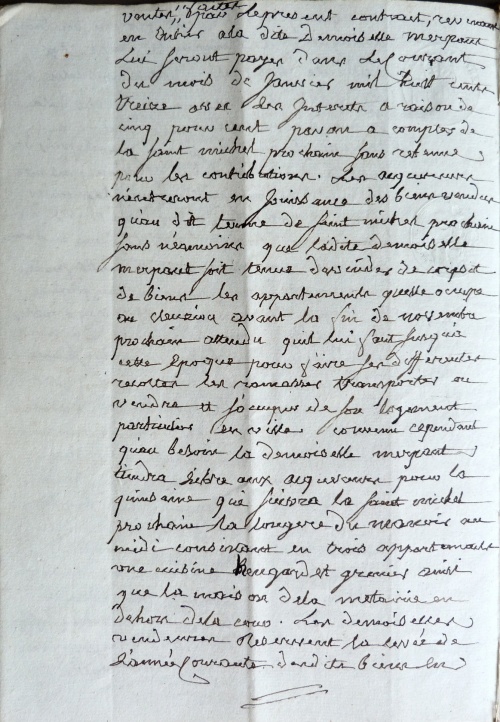 ventes faites par le present contrat, revenant
en outre a la dite Demoiselle merpaut
Lui seront payer dans le Courant
du mois de janvier mil huit cent
treize avec les Interets a raison de
cinq pour cent par an a compter de
la saint michel prochaine sans retenue
pour les contributions. Les acquereurs
n'entreront en jouissance des biens vendus
qu'au dit terme de saint michel prochaine
sans neanmoins que ladite demoiselle
merpaut soit tenue de vuider de corps et
de biens les appartements quelle occupe
au avant la fin de novembre
prochain attendu quil lui faut jusqu'a
cette Epoque pour faire ses differentes
recoltes les ramasser transporter ou
vendre et s'occuper de son logement
particulier en ville convenu cependant
qu'au besoin la demoiselle merpaut
tiendra libre aux acquereurs pour la
quinzaine qui suivra la saint michel
prochaine la longere du manoir au
midi consistant en trois appartements
une cuisine hangard et grenier ainsi
que la maison de la metairie en
dehors de la cour. Les demoiselles
venderesses reservent la levée de
L'année Courante desdits biens les